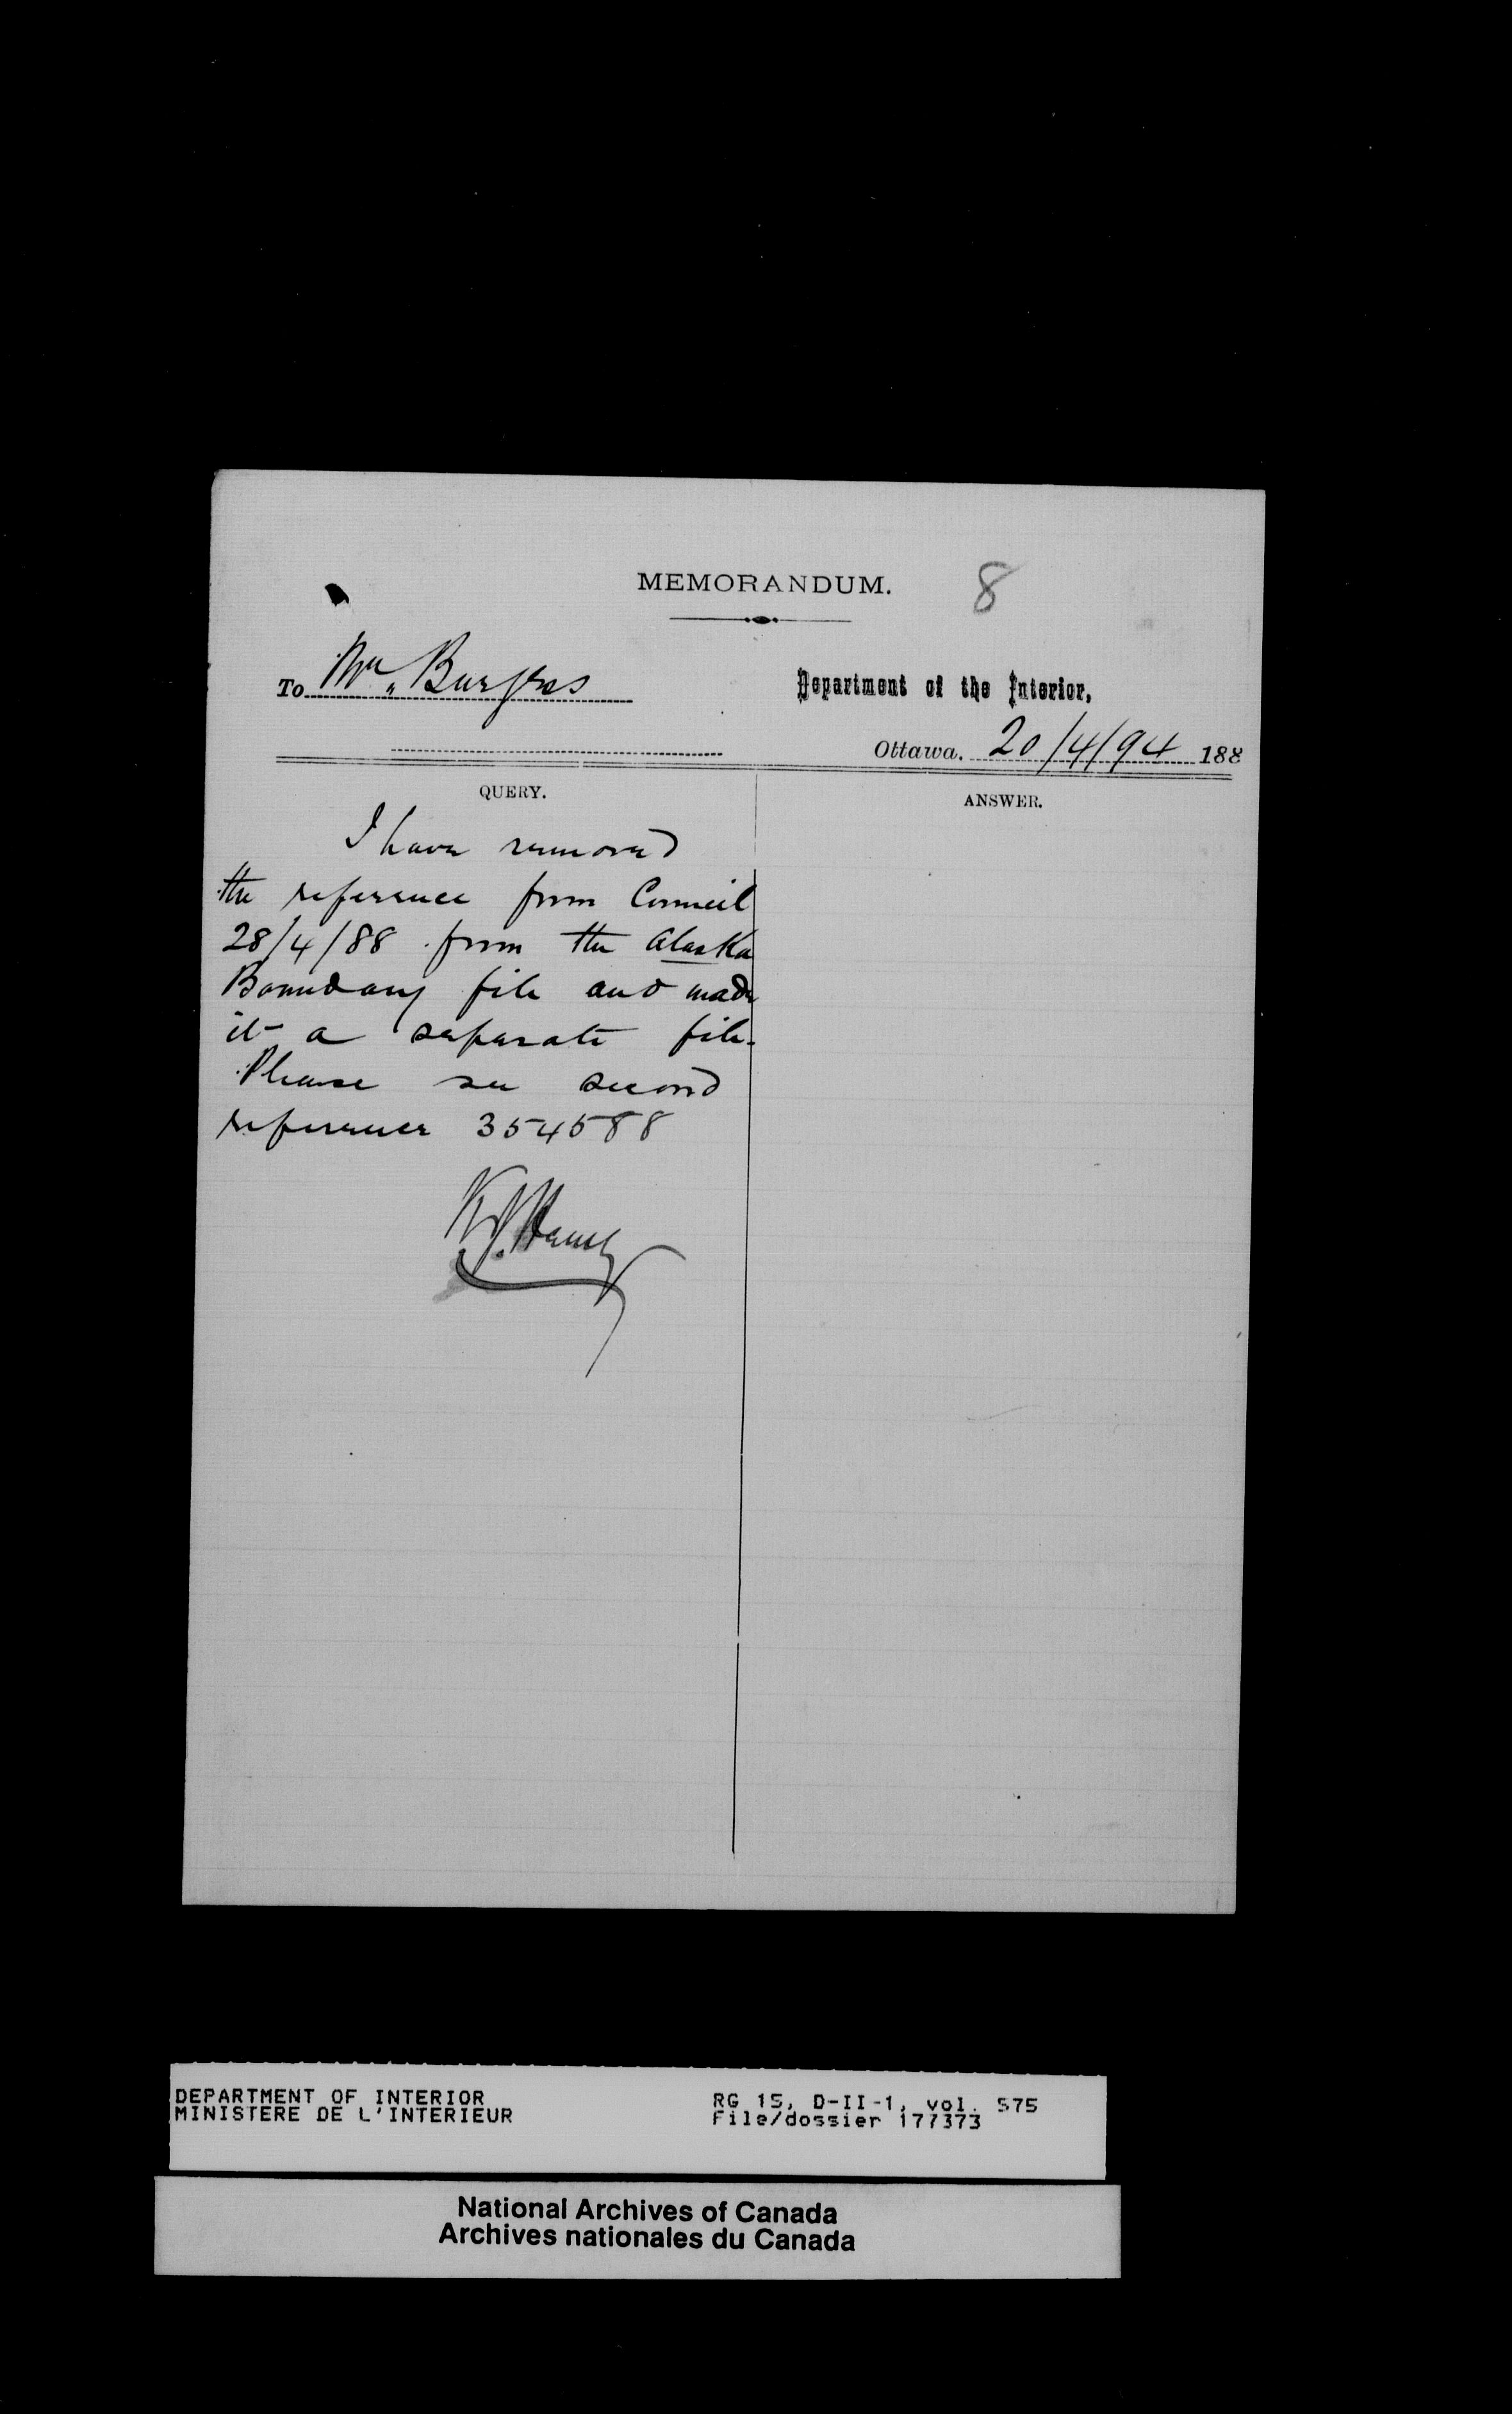 MEMORANDUM.
8
To Mr. Burgess
Department of the Interior,
Ottawa. 20/4/94 188
QUERY.
ANSWER.
I have removed
the reference from Council
28/4/88 from the Alaska
Boundary file and made
it a separate file.
Please see second
reference 354588
DEPARTMENT OF INTERIOR
MINISTERE DE L'INTERIEUR
RG 15, D-II-1, vol. 575
File/dossier 177373
National Archives of Canada
Archives nationales du Canada